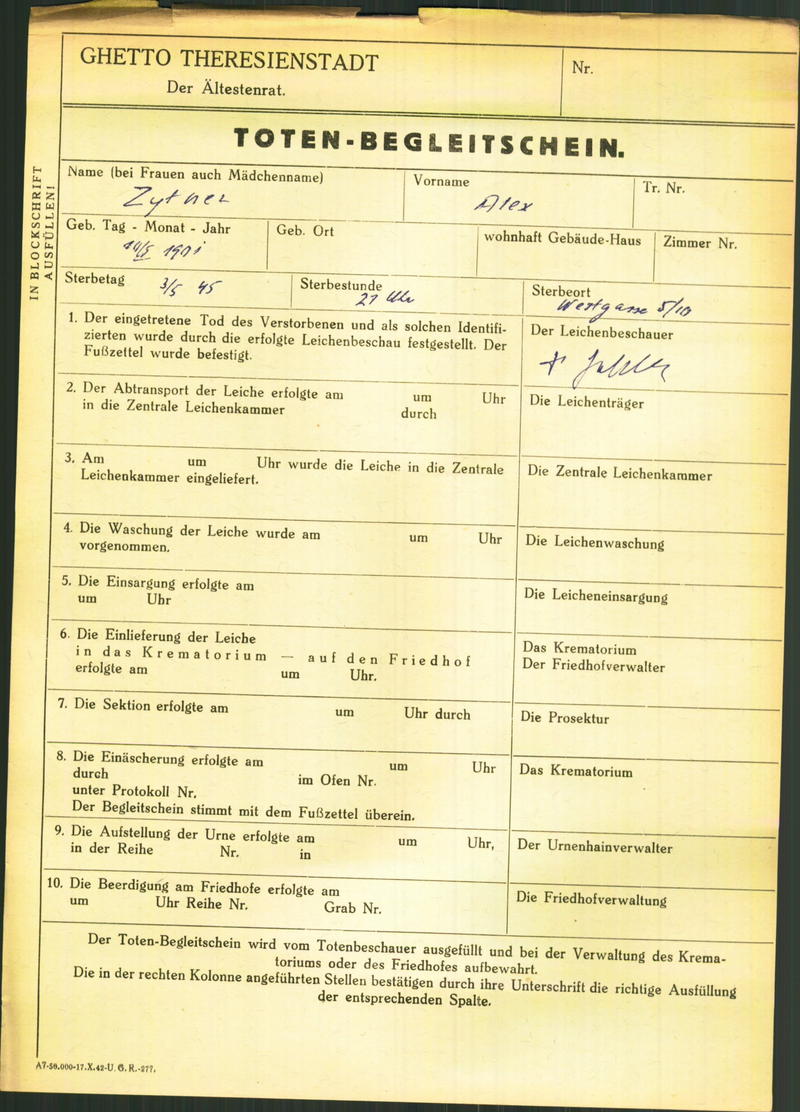 GHETTO THERESIENSTADT
Der Ältestenrat.
Nr.
TOTEN-BEGLEITSCHEIN.
IN BLOCKSCHRIFT
AUSFÜLLEN!
Name (bei Frauen auch Mädchenname)
Zytner
Vorname
Alex
Tr. Nr.
Geb. Tag - Monat - Jahr
1901
Geb. Ort
wohnhaft Gebäude-Haus
Zimmer Nr.
Sterbetag
3/5 45
Sterbestunde
21 Uhr
Sterbeort
Westgasse 5/10
1. Der eingetretene Tod des Verstorbenen und als solchen Identifi-
zierten wurde durch die erfolgte Leichenbeschau festgestellt. Der
Fußzettel wurde befestigt.
Der Leichenbeschauer
2. Der Abtransport der Leiche erfolgte am um Uhr
in die Zentrale Leichenkammer durch
Die Leichenträger
3. Am um Uhr wurde die Leiche in die Zentrale
Leichenkammer eingeliefert.
Die Zentrale Leichenkammer
4. Die Waschung der Leiche wurde am um Uhr
vorgenommen.
Die Leichenwaschung
5. Die Einsargung erfolgte am
um Uhr
Die Leicheneinsargung
6. Die Einlieferung der Leiche
in das Krematorium — auf den Friedhof
erfolgte am um Uhr.
Das Krematorium
Der Friedhofverwalter
7. Die Sektion erfolgte am um Uhr durch
Die Prosektur
8. Die Einäscherung erfolgte am um Uhr
durch im Ofen Nr.
unter Protokoll Nr.
Der Begleitschein stimmt mit dem Fußzettel überein.
Das Krematorium
9. Die Aufstellung der Urne erfolgte am um Uhr,
in der Reihe Nr. in
Der Urnenhainverwalter
10. Die Beerdigung am Friedhofe erfolgte am
um Uhr Reihe Nr. Grab Nr.
Die Friedhofverwaltung
Der Toten-Begleitschein wird vom Totenbeschauer ausgefüllt und bei der Verwaltung des Krema-
toriums oder des Friedhofes aufbewahrt.
Die in der rechten Kolonne angeführten Stellen bestätigen durch ihre Unterschrift die richtige Ausfüllung
der entsprechenden Spalte.
A7-50.000-17.X.42-U. G. R.-277.